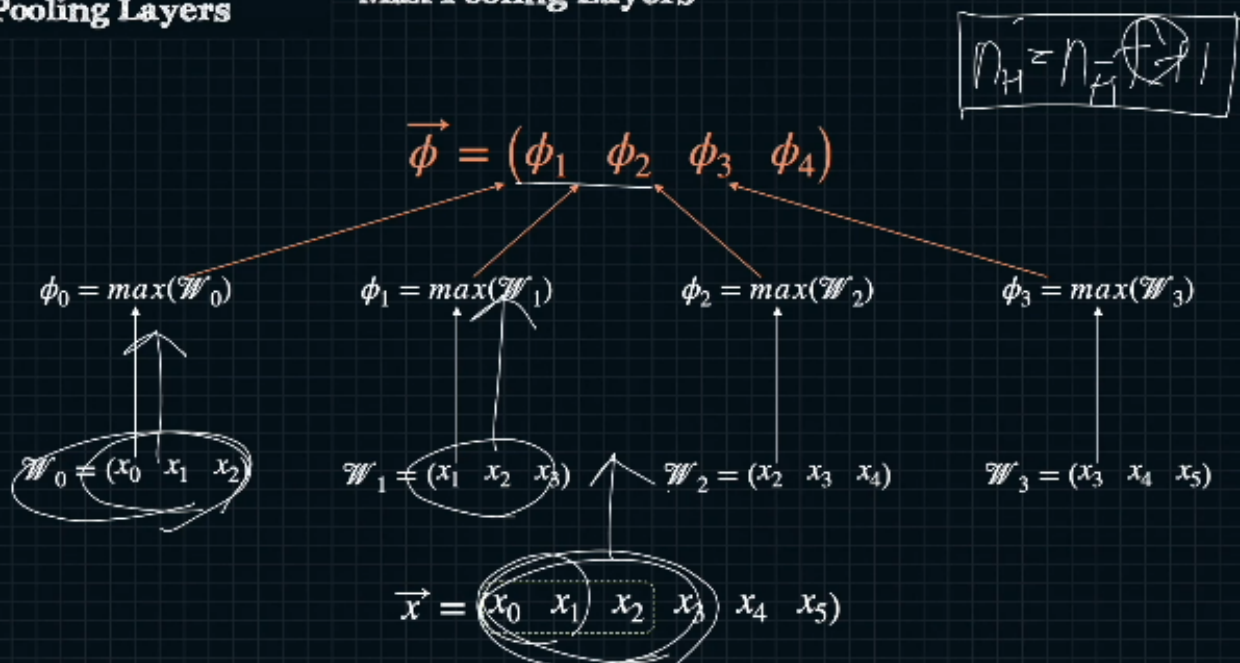 Pooling Layers
Max Pooling Layers
n_H = n_H - f + 1
ϕ⃗ = (ϕ₁ ϕ₂ ϕ₃ ϕ₄)
ϕ₀ = max(𝒲₀) ϕ₁ = max(𝒲₁) ϕ₂ = max(𝒲₂) ϕ₃ = max(𝒲₃)
𝒲₀ = (x₀ x₁ x₂) 𝒲₁ = (x₁ x₂ x₃) 𝒲₂ = (x₂ x₃ x₄) 𝒲₃ = (x₃ x₄ x₅)
x⃗ = (x₀ x₁ x₂ x₃ x₄ x₅)